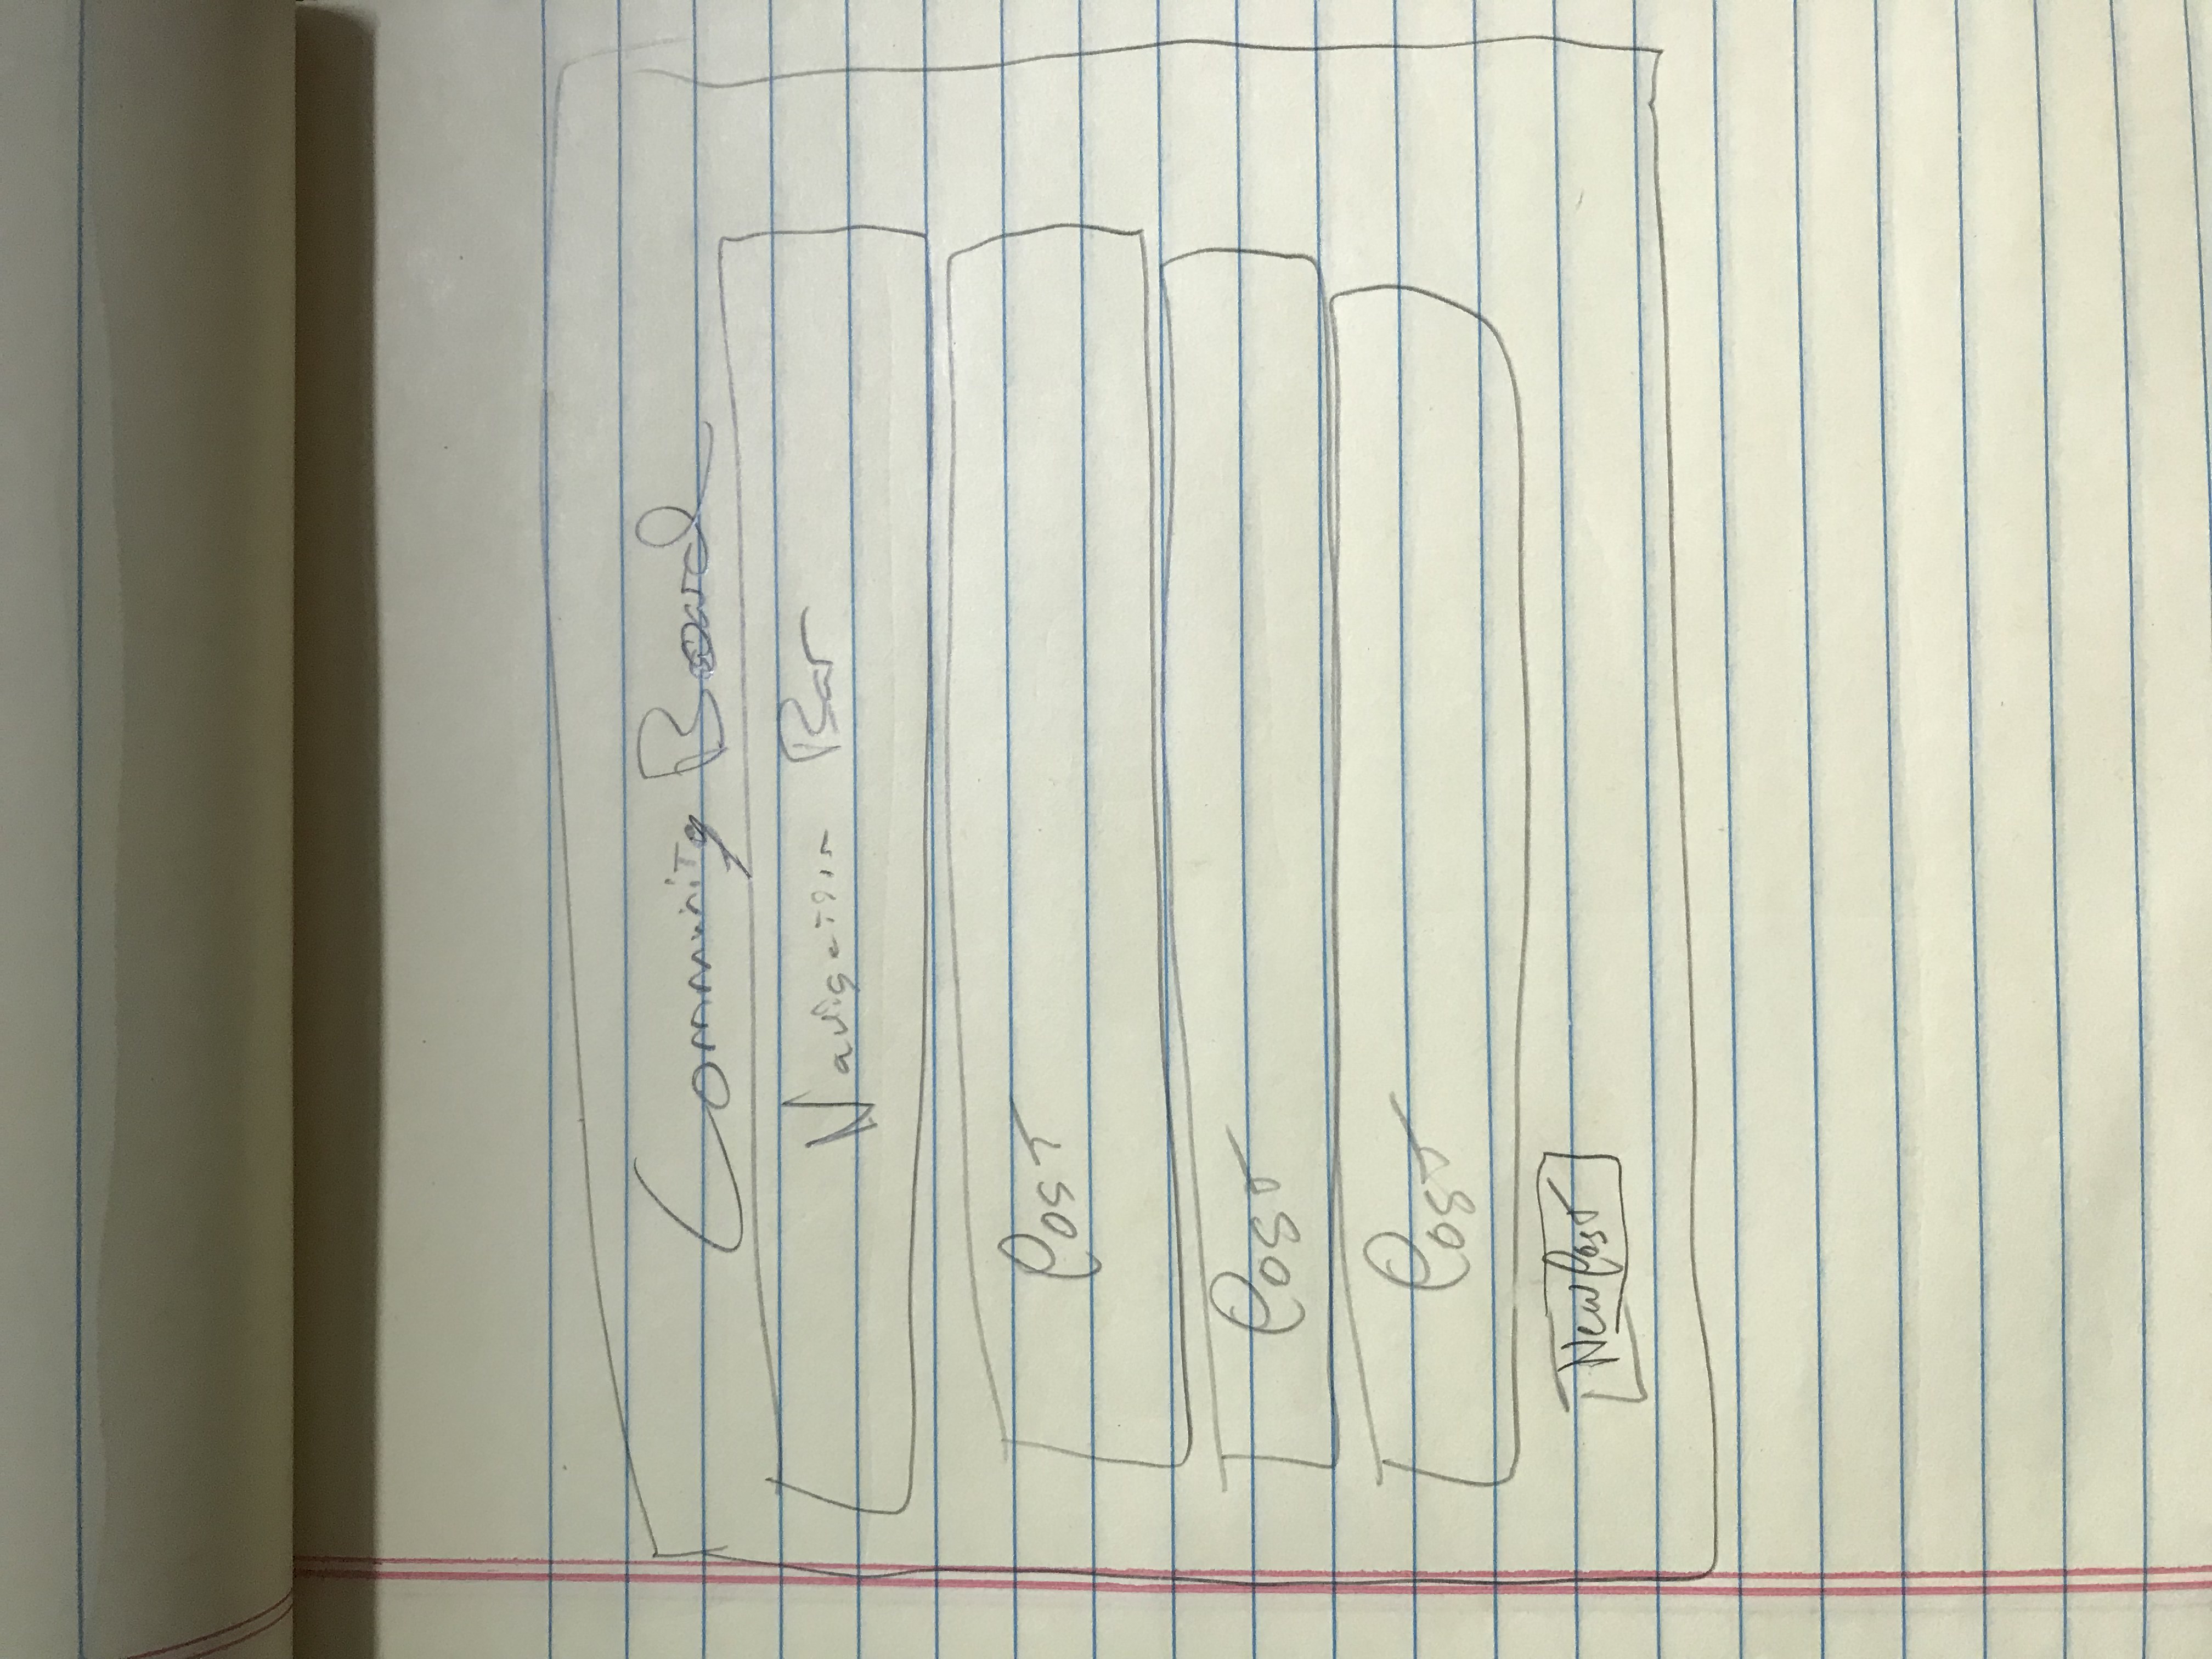 Community Board
Navigation Bar
Post
Post
Post
New Post